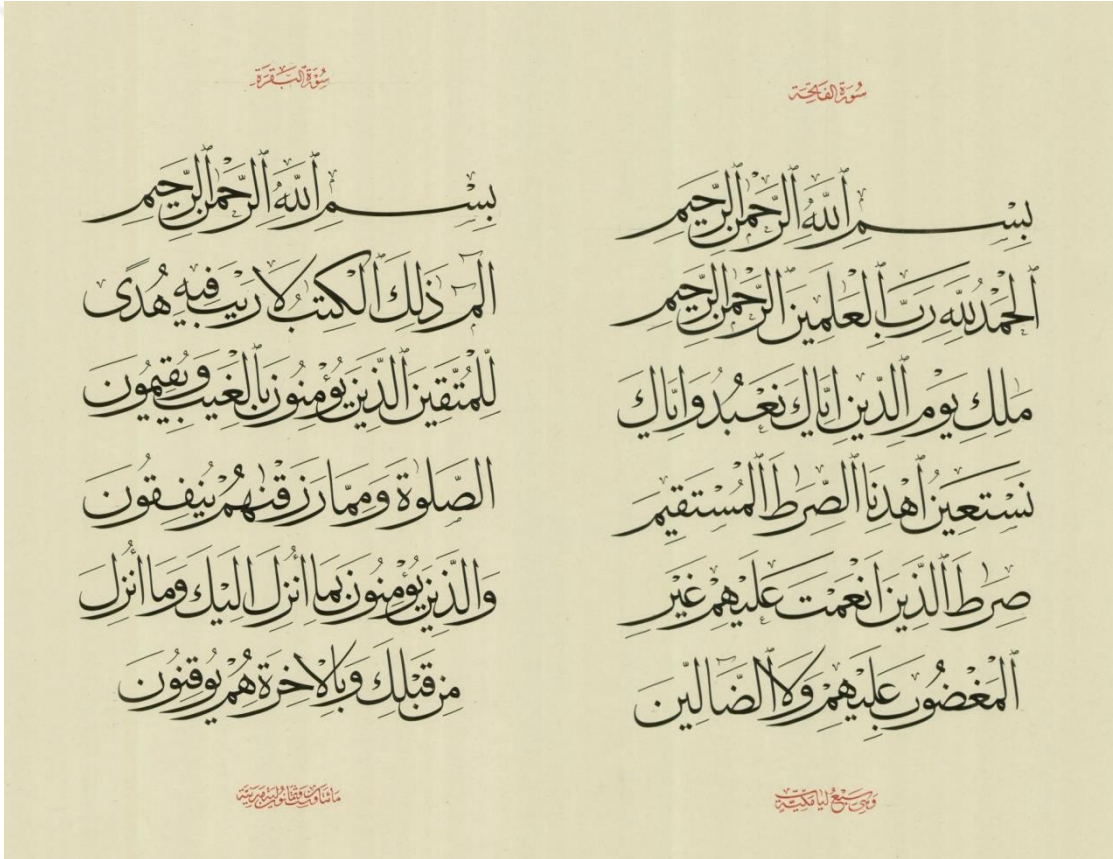 سُورَةُ الفَاتِحَة
بِسْمِ ٱللَّهِ ٱلرَّحْمٰنِ ٱلرَّحِيمِ
ٱلْحَمْدُ لِلَّهِ رَبِّ ٱلْعَٰلَمِينَ ٱلرَّحْمٰنِ ٱلرَّحِيمِ
مَٰلِكِ يَوْمِ ٱلدِّينِ اِيَّاكَ نَعْبُدُ وَاِيَّاكَ
نَسْتَعِينُ ٱهْدِنَا ٱلصِّرَٰطَ ٱلْمُسْتَقِيمَ
صِرَٰطَ ٱلَّذِينَ اَنْعَمْتَ عَلَيْهِمْ غَيْرِ
ٱلْمَغْضُوبِ عَلَيْهِمْ وَلَا ٱلضَّآلِّينَ
وَهِيَ سَبْعُ اٰيَاتٍ مَكِّيَّة
سُورَةُ ٱلْبَقَرَةِ
بِسْمِ ٱللَّهِ ٱلرَّحْمٰنِ ٱلرَّحِيمِ
الٓمٓ ذٰلِكَ ٱلْكِتٰبُ لَا رَيْبَ فِيهِ هُدًى
لِلْمُتَّقِينَ ٱلَّذِينَ يُؤْمِنُونَ بِٱلْغَيْبِ وَيُقِيمُونَ
الصَّلٰوةَ وَمِمَّا رَزَقْنٰهُمْ يُنْفِقُونَ
وَالَّذِينَ يُؤْمِنُونَ بِمَا أُنْزِلَ اِلَيْكَ وَمَا أُنْزِلَ
مِنْ قَبْلِكَ وَبِالْاٰخِرَةِ هُمْ يُوقِنُونَ